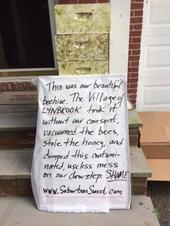 This was our beautiful
beehive. The Village of
LYNBROOK took it
without our consent,
vacuumed the bees,
stole the honey, and
dumped this contami-
nated, useless mess
on our doorstep. SHAME
www.SuburbanSweet.com